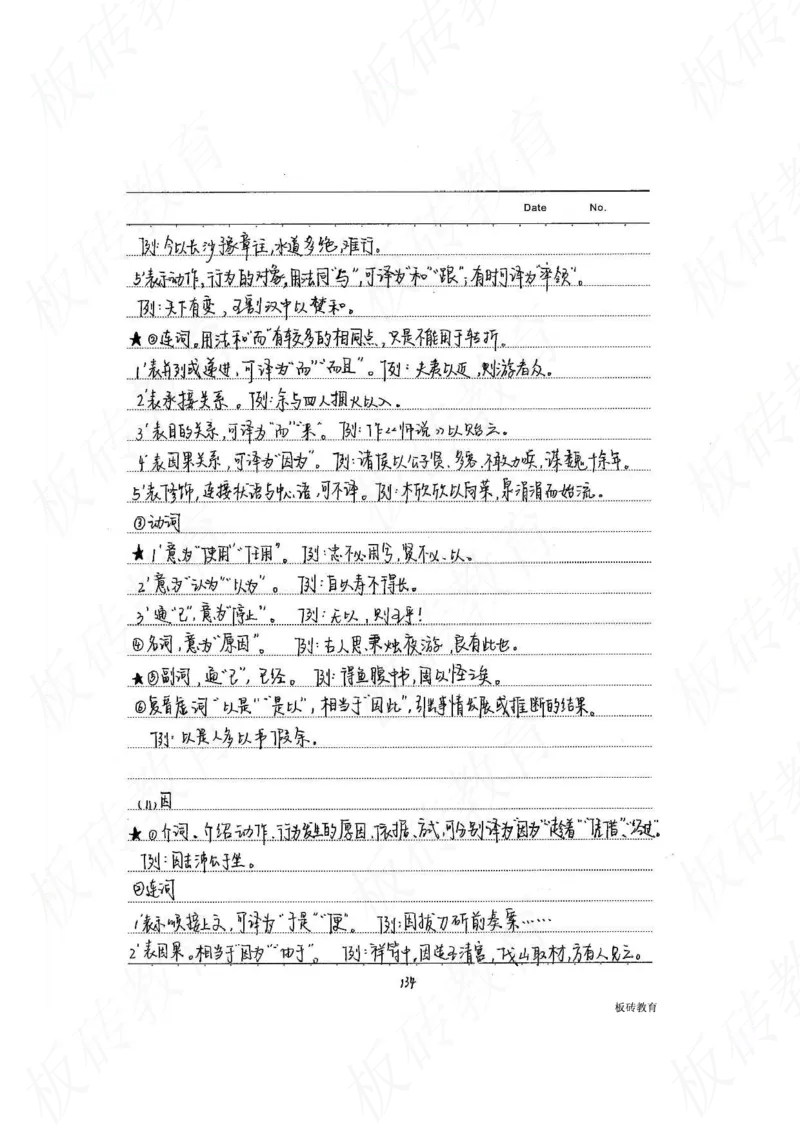 Date No.
例:今以长沙豫章往,水道多绝,难行。
5'表示动作,行为的对象,用法同"与",可译为"和""跟";有时可译为"率领"。
例:天下有变,王割汉中以楚和。
★②连词。用法和"而"有较多的相同点,只是不能用于转折。
1'表并列或递进,可译为"而""而且"。例:夫夷以近,则游者众。
2'表承接关系。例:余与四人拥火以入。
3'表目的关系,可译为"而""来"。例:作《师说》以贻之。
4'表因果关系,可译为"因为"。例:诸侯以公子贤、多客,不敢力唤,谋魏十余年。
5'表修饰,连接状语与中心语,可不译。例:木欣欣以向荣,泉涓涓而始流。
③动词
★1'意为"使用""任用"。例:忠不必用兮,贤不必以。
2'意为"认为""以为"。例:自以寿不得长。
3'通"已",意为"停止"。例:无以,则王乎!
④名词,意为"原因"。例:古人思秉烛夜游,良有此也。
★⑤副词,通"已",已经。例:得鱼腹中书,固以怪之矣。
⑥复音虚词"以是""是以",相当于"因此",引出事情发展或推断的结果。
例:以是人多以书假余。
(11)因
★①介词。介绍动作、行为发生的原因、依据、方式,可分别译为"因为""趁着""凭借"、"经过"。
例:因击沛公于坐。
②连词
1'表示顺接上文,可译为"于是""便"。例:因拔刀斫前奏案……
2'表因果。相当于"因为""由于"。例:祥符中,因造玉清宫,伐山取材,方有人见之。
134
板砖教育
板砖教育